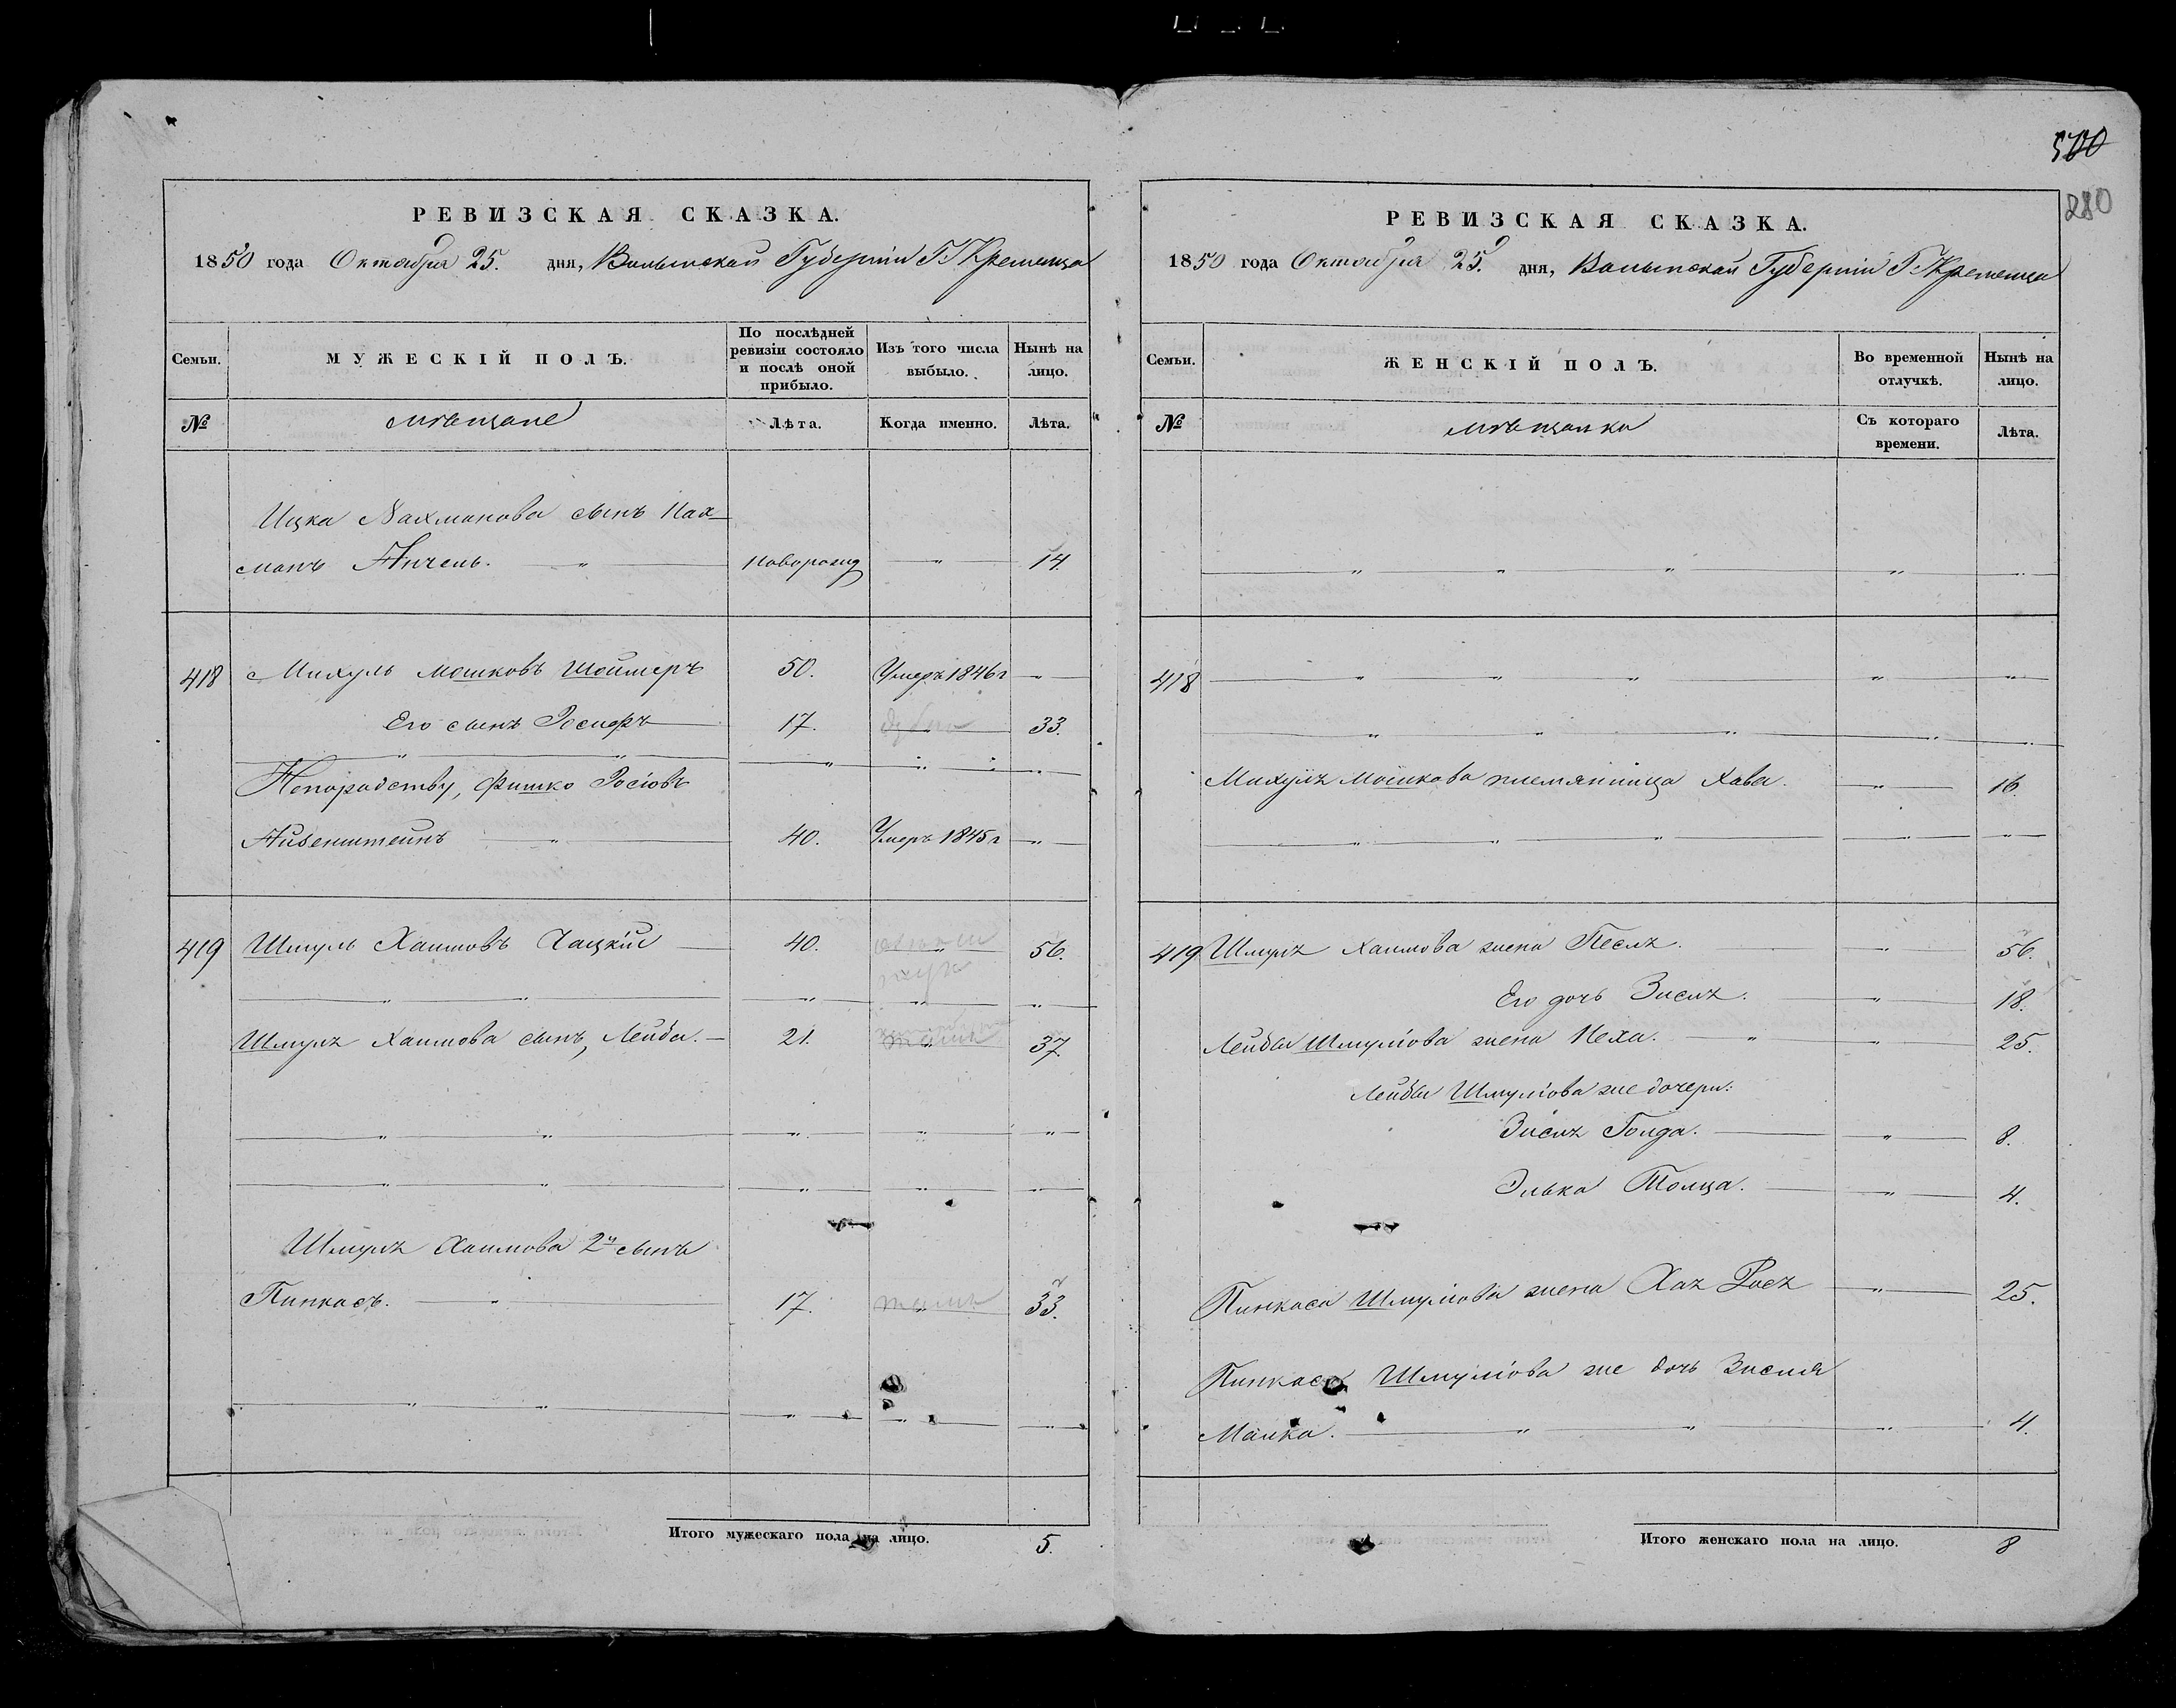 500
280
РЕВИЗСКАЯ СКАЗКА.
1850 года Октября 25. дня, Волынской Губерніи Г. Кременца
Семьи.
МУЖЕСКІЙ ПОЛЪ.
По послѣдней ревизіи состояло и послѣ оной прибыло.
Изъ того числа выбыло.
Нынѣ на лицо.
№
мѣщане
Лѣта.
Когда именно.
Лѣта.
Ицка Нахманова сынъ Нах-
манъ Анчель. новорожд 14.
418 Михуль Мошковъ 50. Умеръ 1846 г
Его сынъ Іосифъ 17. 33.
Непородству, Фишко Іосіовъ
Айзенштейнъ 40. Умеръ 1845 г
419 Шмуль Хаимовъ Чацкій 40. 56.
Шмуля Хаимова сынъ, Лейба. 21. 37.
Шмуля Хаимова 2й сынъ
Пинкасъ. 17. 33.
Итого мужескаго пола на лицо. 5.
РЕВИЗСКАЯ СКАЗКА.
1850 года Октября 25. дня, Волынской Губерніи Г. Кременца
Семьи.
ЖЕНСКІЙ ПОЛЪ.
Во временной отлучкѣ.
Нынѣ на лицо.
№
мѣщанки
Съ котораго времени.
Лѣта.
418
Михуля Мошкова племянница Хава. 16.
419 Шмуля Хаимова жена Песля. 56.
Его дочь Зисля. 18.
Лейбы Шмуліова жена Неха. 25.
Лейбы Шмуліова же дочери:
Зисля Голда. 8.
Элька Толца. 4.
Пинкаса Шмуліова жена Хая Рося 25.
Пинкаса Шмуліова же дочь Зисля
Малка. 4.
Итого женскаго пола на лицо. 8